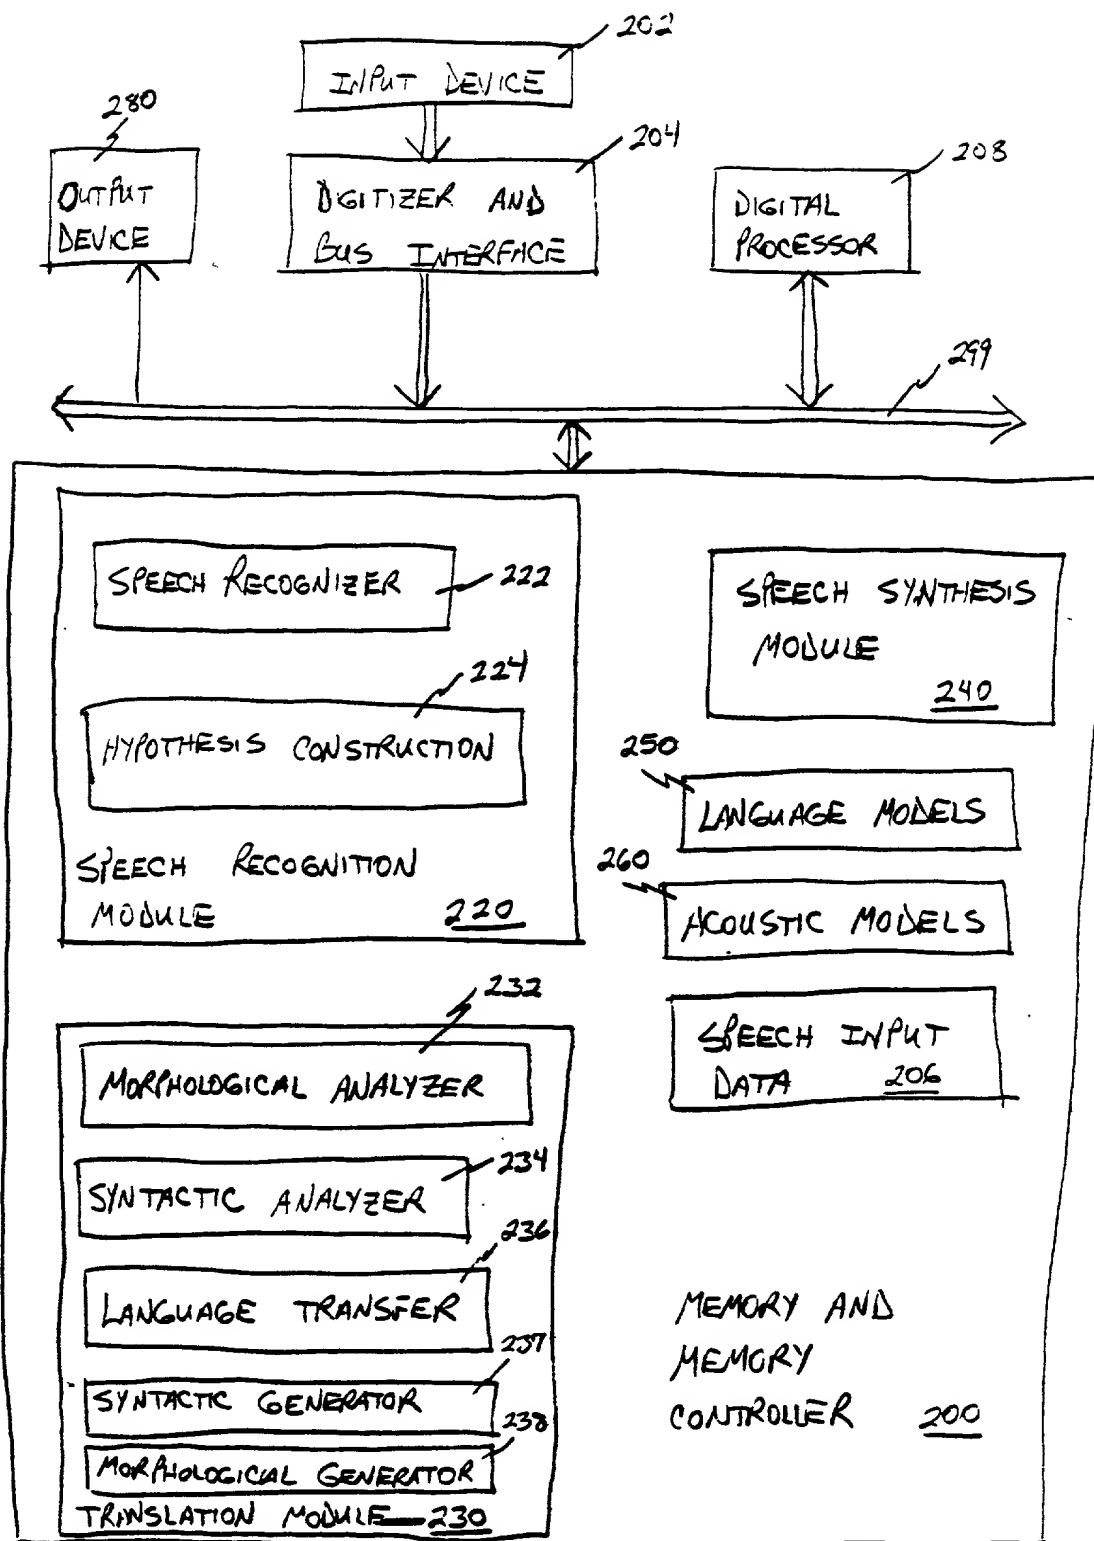 202
INPUT DEVICE
280
OUTPUT
DEVICE
204
DIGITIZER AND
BUS INTERFACE
208
DIGITAL
PROCESSOR
299
SPEECH RECOGNIZER
222
224
HYPOTHESIS CONSTRUCTION
SPEECH RECOGNITION
MODULE 220
SPEECH SYNTHESIS
MODULE
240
250
LANGUAGE MODELS
260
ACOUSTIC MODELS
SPEECH INPUT
DATA 206
232
MORPHOLOGICAL ANALYZER
234
SYNTACTIC ANALYZER
236
LANGUAGE TRANSFER
237
SYNTACTIC GENERATOR
238
MORPHOLOGICAL GENERATOR
TRANSLATION MODULE 230
MEMORY AND
MEMORY
CONTROLLER 200